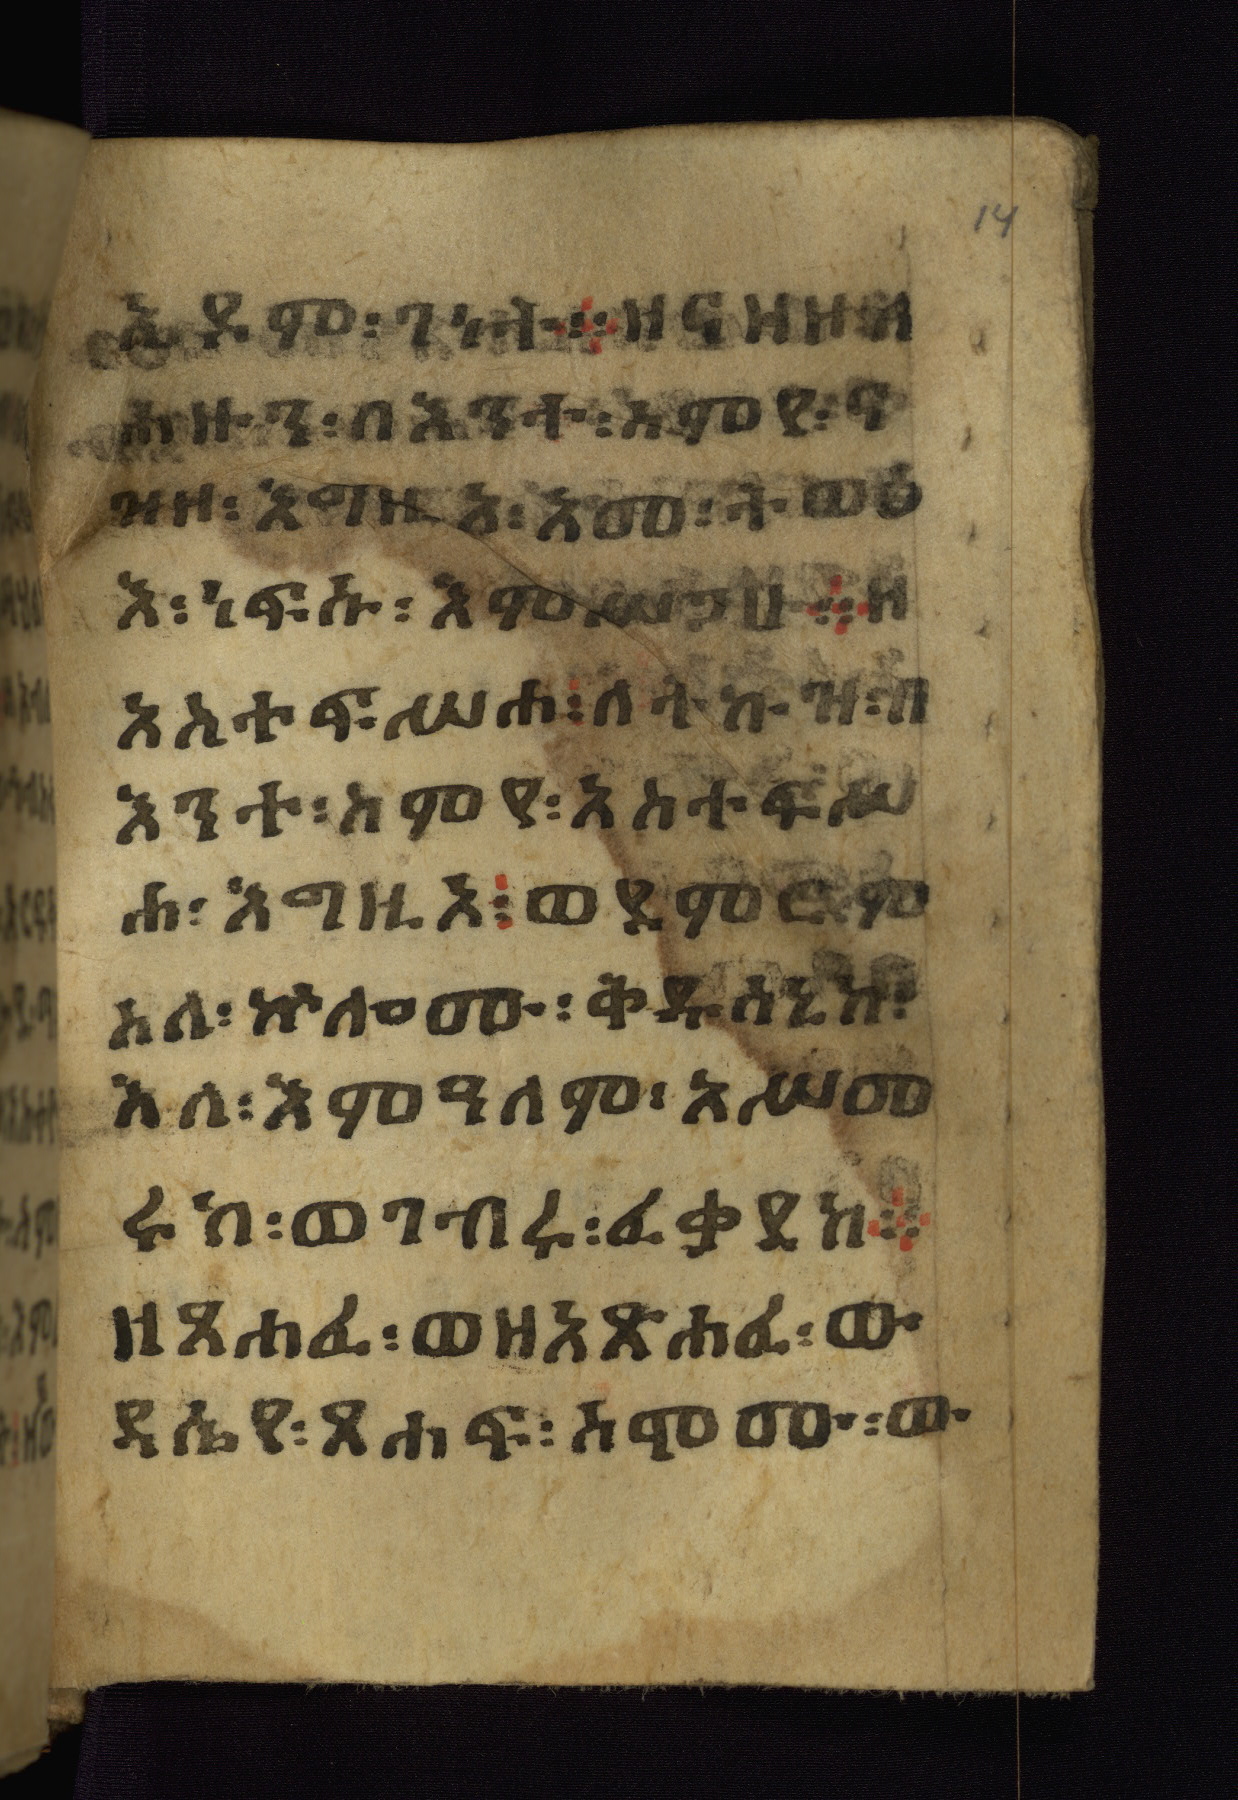 14
አዶም፡ገነት፨ዘናዘዘከ
ሐዙን፡በእንተ፡አምየ፡ና
ዝዘ፡እግዚእ፡እመ፡ትወፅ
እ፡ነፍሱ፡እምሥጋሀ፨ዘ
አስተፍሥሐ፡ለትኩዝ፡በ
እንተ፡አምየ፡አስተፍሥ
ሐ፡እግዚእ፡ወደምሮም
አለ፡ኵሎሙ፡ቅዱሳኒከ፡
እለ፡እምዓለም፡አሥመ
ሩከ፡ወገብሩ፡ፈቃደከ፨
ዘጸሐፈ፡ወዘአጽሐፈ፡ው
ዳሴየ፡ጸሐፍ፡አሞሙ፡ው